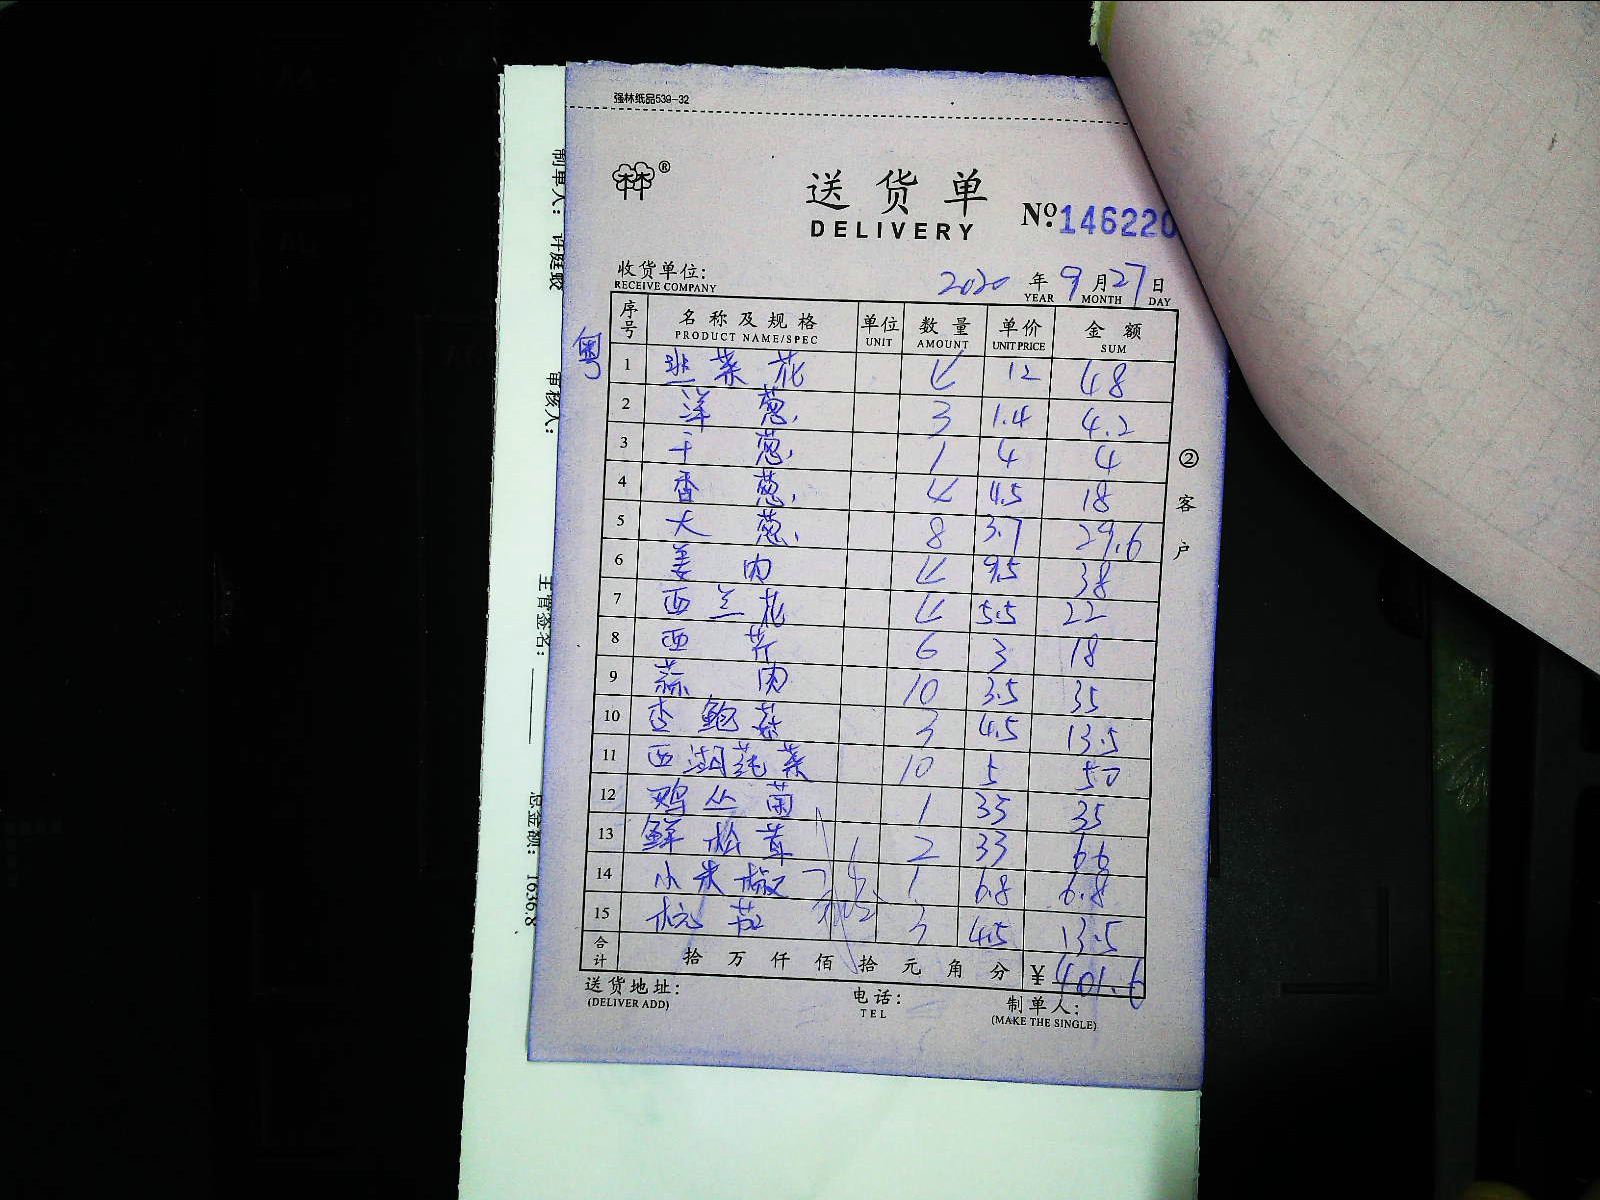 强林纸品539-32
林林®
送货单
DELIVERY
№:146220
收货单位:
RECEIVE COMPANY
2020 年 9 月 27 日
YEAR MONTH DAY
序号 名称及规格 单位 数量 单价 金额
PRODUCT NAME/SPEC UNIT AMOUNT UNIT PRICE SUM
粤
1 韭菜花 4 12 48
2 洋葱 3 1.4 4.2
3 干葱 1 4 4
4 香葱 4 4.5 18
5 大葱 8 3.7 29.6
6 姜肉 4 9.5 38
7 西兰花 4 5.5 22
8 西芹 6 3 18
9 蒜肉 10 3.5 35
10 杏鲍菇 3 4.5 13.5
11 西湖莼菜 10 5 50
12 鸡丛菌 1 35 35
13 鲜松茸 2 33 66
14 小米椒 1 6.8 6.8
15 杭茄 3 4.5 13.5
合计 拾万仟佰拾元角分 ¥401.6
送货地址:
(DELIVER ADD)
电话:
TEL
制单人:
(MAKE THE SINGLE)
②客户
制单人: 许庭
审核人:
主管签名:
总金额: 1636.8